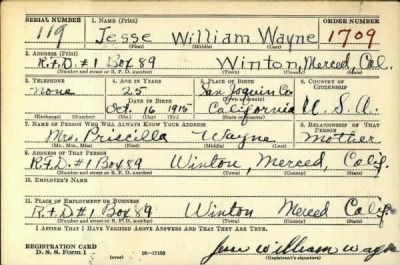 SERIAL NUMBER 1. NAME (Print) ORDER NUMBER
119 Jesse William Wayne 1709
(First) (Middle) (Last)
2. ADDRESS (Print)
R.F.D. #1 Box 89 Winton, Merced, Cal.
(Number and street or R. F. D. number) (Town) (County) (State)
3. TELEPHONE 4. AGE IN YEARS 5. PLACE OF BIRTH 6. COUNTRY OF CITIZENSHIP
none 25 San Joquin Co
DATE OF BIRTH (Town or county)
Oct. 16 1915 California U.S.A.
(Exchange) (Number) (Mo.) (Day) (Yr.) (State or country)
7. NAME OF PERSON WHO WILL ALWAYS KNOW YOUR ADDRESS 8. RELATIONSHIP OF THAT PERSON
Mrs. Priscilla Wayne Mother
(Mr., Mrs., Miss) (First) (Middle) (Last)
9. ADDRESS OF THAT PERSON
R.F.D. #1 Box 89 Winton, Merced, Calif.
(Number and street or R. F. D. number) (Town) (County) (State)
10. EMPLOYER'S NAME
11. PLACE OF EMPLOYMENT OR BUSINESS
R.F.D. #1 Box 89 Winton Merced Calif.
(Number and street or R. F. D. number) (Town) (County) (State)
I AFFIRM THAT I HAVE VERIFIED ABOVE ANSWERS AND THAT THEY ARE TRUE.
REGISTRATION CARD
D. S. S. Form 1 (over) Jesse William Wayne
(Registrant's signature)